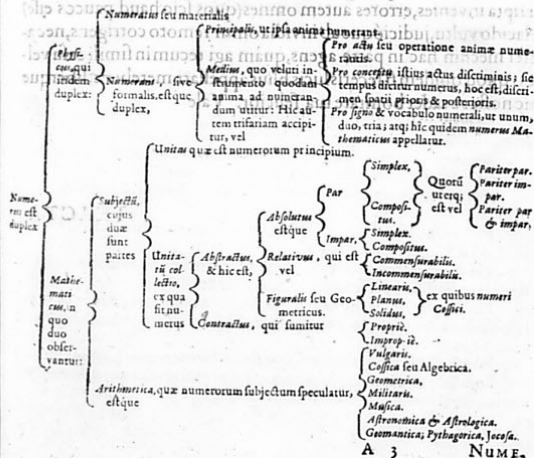 Numeratus seu materialis
Principalis, ut ipsa anima numerant.
Physi-
cus, qui
itidem
duplex:
Numerans, sive
formalis, estque
duplex,
Medius, quo veluti in-
strumento quodam
anima ad numeran-
dum utitur: Hic au-
tem trifariam accipi-
tur, vel
Pro actu seu operatione animæ nume-
rantis.
Pro conceptu istius actus discriminis; sic
tempus dicitur numerus, hoc est, discri-
men spatii prioris & posterioris.
Pro signo & vocabulo numerali, ut unum,
duo, tria; atq; hic quidem numerus Ma-
thematicus appellatur.
Unitas quæ est numerorum principium.
Nume-
rus est
duplex
Subjectũ,
cujus
duæ
sunt
partes
Unita-
tũ col-
lectio,
ex qua
fit nu-
merus
Abstractus,
& hic est,
Absolutus
estque
Par
Simplex,
Composi-
tus.
Quorũ
uterq;
est vel
Pariter par.
Pariter im-
par.
Pariter par
& impar,
Impar,
Simplex.
Compositus.
Relativus, qui est
vel
Commensurabilis.
Incommensurabilis.
Figuralis seu Geo-
metricus.
Linearis,
Planus,
Solidus,
ex quibus numeri
Cossici.
Contractus, qui sumitur
Propriè.
Improp iè.
Mathe-
mati
cus, in
quo
duo
obser-
vantur:
Arithmetica, quæ numerorum subjectum speculatur,
estque
Vulgaris.
Cossica seu Algebrica.
Geometrica,
Militaris.
Musica.
Astronomica & Astrologica.
Geomantica; Pythagorica, Jocosa.
A 3 NUME-